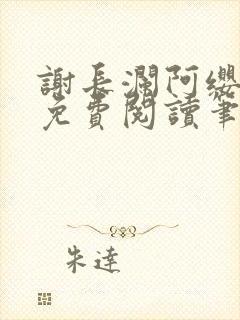 謝長瀾阿纓
免費閱讀筆
朱達